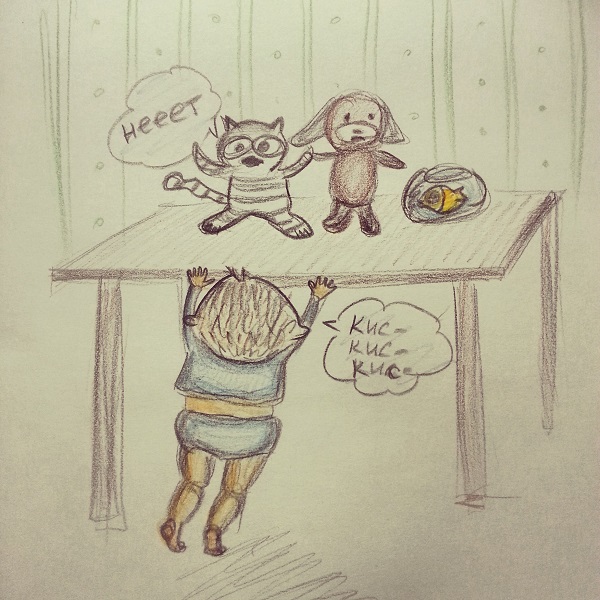 НЕЕЕТ
КИС-
КИС-
КИС-